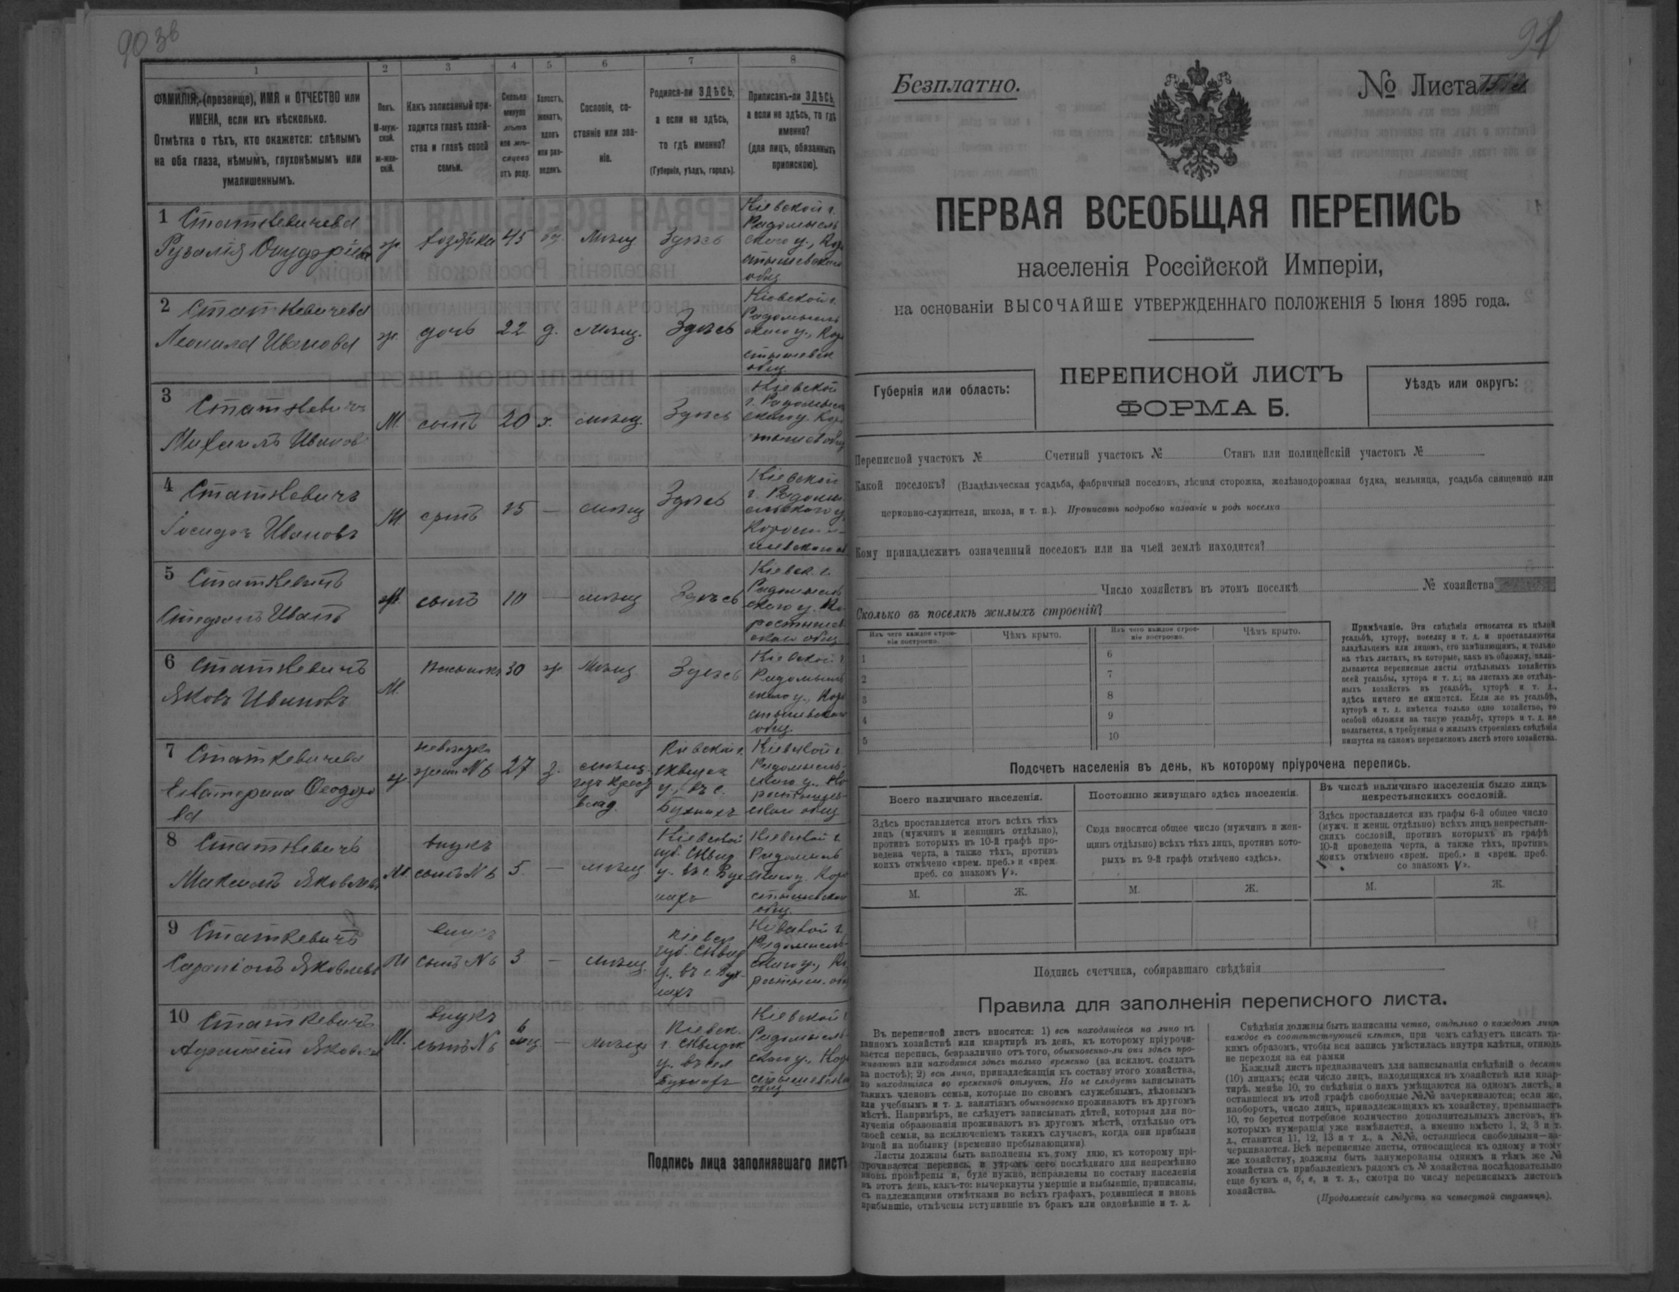 90 зв
1 2 3 4 5 6 7 8
ФАМИЛІЯ, (прозвище), ИМЯ и ОТЧЕСТВО или
ИМЕНА, если ихъ нѣсколько.
Отмѣтка о тѣхъ, кто окажется: слѣпымъ
на оба глаза, нѣмымъ, глухонѣмымъ или
умалишеннымъ.
Полъ.
М-муж-
ской.
ж-жен-
скій.
Какъ записанный при-
ходится главѣ хозяй-
ства и главѣ своей
семьи.
Сколько
минуло
лѣтъ
или мѣ-
сяцевъ
отъ роду.
Холостъ,
женатъ,
вдовъ
или раз-
веденъ.
Сословіе, со-
стояніе или зва-
ніе.
Родился-ли ЗДѢСЬ,
а если не здѣсь,
то гдѣ именно?
(Губернія, уѣздъ, городъ).
Приписанъ-ли ЗДѢСЬ,
а если не здѣсь, то гдѣ
именно?
(для лицъ, обязанныхъ
припискою).
1 Статкевичева
ж. хозяйка 45 вд. мѣщ Здѣсь
Кіевской г.
Радомысль
скаго у., Кор
стышевского
общ
2 Статкевичева
Леонила Иванова
ж. дочь 22 д. мѣщ. Здѣсь
Кіевской г.
Радомысль
скаго у., Кор
стышевск
общ
3 Статкевичъ
Михаилъ Иванов
М. сынъ 20 х. мѣщ. Здѣсь
Кіевской
г. Радомысль
скаго у. Кор
4 Статкевичъ
Ивановъ
М сынъ 15 — мѣщ Здѣсь
Кіевской
5 Статкевичъ
сынъ 10 — мѣщ Здѣсь
Кіевск. г.
Радомысль
скаго у. Ко
ростышев
ского общ
6 Статкевичъ
Яковъ Ивановъ
М 30 ж мѣщ Здѣсь
Кіевской г
Радомысль
скаго у., Кор
стышевского
общ.
7 Статкевичева
Екатерина Феодоро
ва
невѣстка
жена №6
27 з. мѣщ.
Кіевской г.
Сквирск
у., въ с.
Кіевской г.
Радомысль-
скаго у., Ко
8 Статкевичъ
Максимъ Яковлевъ
М внукъ
сынъ №6 5 — мѣщ
Кіевской
губ. Сквир
у. въ с. Бух
нахъ
Кіевской г.
9 Статкевичъ
Яковлевъ
М внукъ
сынъ №6 3 — мѣщ.
Кіевск
губ. Сквир
у. въ с. Бух-
нахъ
Кіевской г.
10 Статкевичъ
Яковлев
М. внукъ
сынъ №6 6 мѣс — мѣщ
Кіевск
г. Сквирск
у. въ сел
Кіевской г
Радомысль
скаго у. Кор
стышевска
общ
Подпись лица заполнявшаго листъ
91
Безплатно.
№ Листа
ПЕРВАЯ ВСЕОБЩАЯ ПЕРЕПИСЬ
населенія Россійской Имперіи,
на основаніи ВЫСОЧАЙШЕ УТВЕРЖДЕННАГО ПОЛОЖЕНІЯ 5 Іюня 1895 года.
Губернія или область:
ПЕРЕПИСНОЙ ЛИСТЪ
ФОРМА Б.
Уѣздъ или округъ:
Переписной участокъ № Счетный участокъ № Станъ или полицейскій участокъ №
Какой поселокъ? (Владѣльческая усадьба, фабричный поселокъ, лѣсная сторожка, желѣзнодорожная будка, мельница, усадьба священно или
церковно-служителя, школа, и т. п.). Прописать подробно названіе и родъ поселка
Кому принадлежитъ означенный поселокъ или на чьей землѣ находится?
Число хозяйствъ въ этомъ поселкѣ № хозяйства
Сколько въ поселкѣ жилыхъ строеній?
Изъ чего каждое строе-
ніе построено.
Чѣмъ крыто.
Изъ чего каждое строе-
ніе построено.
Чѣмъ крыто.
1 6
2 7
3 8
4 9
5 10
Примѣчаніе. Эти свѣдѣнія относятся къ цѣлой
усадьбѣ, хутору, поселку и т. д. и проставляются
владѣльцемъ или лицомъ, его замѣняющимъ, и только
на тѣхъ листахъ, въ которые, какъ въ обложку, вкла-
дываются переписные листы отдѣльныхъ хозяйствъ
всей усадьбы, хутора и т. д.; на листахъ же отдѣль-
ныхъ хозяйствъ въ усадьбѣ, хуторѣ и т. д.,
здѣсь ничего не пишется. Если же въ усадьбѣ,
хуторѣ и т. д. имѣется только одно хозяйство, то
особой обложки на такую усадьбу, хуторъ и т. д. не
полагается, а требуемыя о жилыхъ строеніяхъ свѣдѣнія
пишутся на самомъ переписномъ листѣ этого хозяйства.
Подсчетъ населенія въ день, къ которому пріурочена перепись.
Всего наличнаго населенія.
Здѣсь проставляется итогъ всѣхъ тѣхъ
лицъ (мужчинъ и женщинъ отдѣльно),
противъ которыхъ въ 10-й графѣ про-
ведена черта, а также тѣхъ, противъ
коихъ отмѣчено «врем. преб.» и «врем.
преб. со знакомъ V».
Постоянно живущаго здѣсь населенія.
Сюда вносится общее число (мужчинъ и жен-
щинъ отдѣльно) всѣхъ тѣхъ лицъ, противъ кото-
рыхъ въ 9-й графѣ отмѣчено «здѣсь».
Въ числѣ наличнаго населенія было лицъ
некрестьянскихъ сословій.
Здѣсь проставляется изъ графы 6-й общее число
(мужч. и женщ. отдѣльно) всѣхъ лицъ некрестьян-
скихъ сословій, противъ которыхъ въ графѣ
10-й проведена черта, а также тѣхъ, противъ
коихъ отмѣчено «врем. преб.» и «врем. преб.
со знакомъ V».
М. Ж. М. Ж. М. Ж.
Подпись счетчика, собиравшаго свѣдѣнія
Правила для заполненія переписного листа.
Въ переписной листъ вносятся: 1) всѣ находящіеся на лицо въ
данномъ хозяйствѣ или квартирѣ въ день, къ которому пріурочи-
вается перепись, безразлично отъ того, обыкновенно-ли они здѣсь про-
живаютъ или находятся здѣсь только временно (за исключ. солдатъ
на постоѣ); 2) всѣ лица, принадлежащія къ составу этого хозяйства,
но находящіяся во временной отлучкѣ. Но не слѣдуетъ записывать
такихъ членовъ семьи, которые по своимъ служебнымъ, дѣловымъ
или учебнымъ и т. д. занятіямъ обыкновенно проживаютъ въ другомъ
мѣстѣ. Напримѣръ, не слѣдуетъ записывать дѣтей, которыя для по-
лученія образованія проживаютъ въ другомъ мѣстѣ, отдѣльно отъ
своей семьи, за исключеніемъ такихъ случаевъ, когда они прибыли
домой на побывку (временно пребывающими).
Листы должны быть заполнены къ тому дню, къ которому прі-
урочивается перепись, и утромъ сего послѣдняго дня непремѣнно
вновь провѣрены и, буде нужно, исправлены по составу населенія
въ этотъ день, какъ-то: вычеркнуты умершіе и выбывшіе, приписаны,
съ надлежащими отмѣтками во всѣхъ графахъ, родившіеся и вновь
прибывшіе, отмѣчены вступившіе въ бракъ или овдовѣвшіе и т. д.
Свѣдѣнія должны быть написаны четко, отдѣльно о каждомъ лицѣ
каждое въ соотвѣтствующей клѣткѣ, при чемъ слѣдуетъ писать та-
кимъ образомъ, чтобы вся запись умѣстилась внутри клѣтки, отнюдь
не переходя за ея рамки
Каждый листъ предназначенъ для записыванія свѣдѣній о десяти
(10) лицахъ; если число лицъ, находящихся въ хозяйствѣ или квар-
тирѣ, менѣе 10, то свѣдѣнія о нихъ умѣщаются на одномъ листѣ, и
оставшіеся въ этой графѣ свободные №№ зачеркиваются; если же,
наоборотъ, число лицъ, принадлежащихъ къ хозяйству, превышаетъ
10, то берется потребное количество дополнительныхъ листовъ, въ
которыхъ нумерація уже измѣняется, а именно вмѣсто 1, 2, 3 и т.
д., ставится 11, 12, 13 и т д., а №№, оставшіеся свободными—за-
черкиваются. Всѣ переписные листы, относящіеся къ одному и тому
же хозяйству, должны быть занумерованы однимъ и тѣмъ же №
хозяйства съ прибавленіемъ рядомъ съ № хозяйства послѣдовательно
еще буквъ а, б, в, и т. д., смотря по числу переписныхъ листовъ
хозяйства.
(Продолженіе слѣдуетъ на четвертой страницѣ).